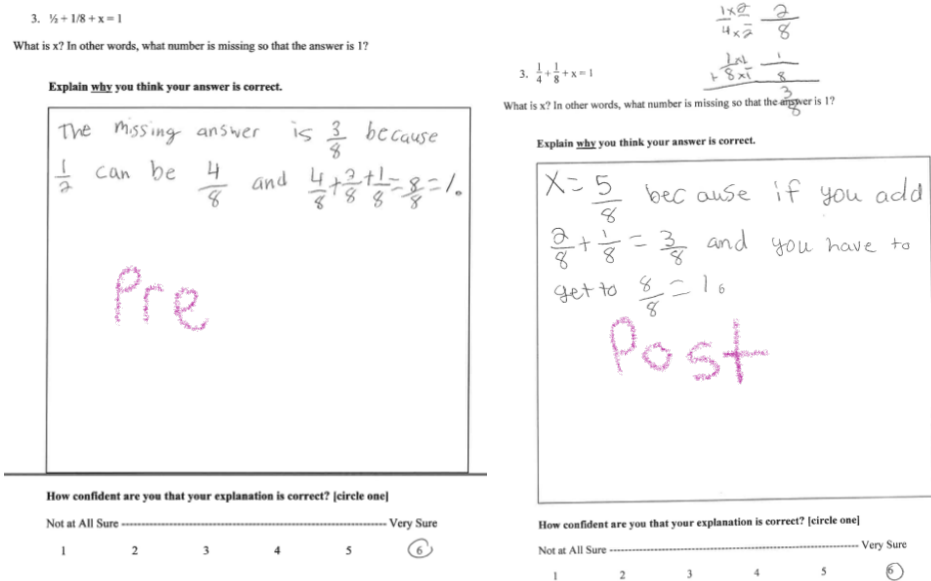 3. ½ + 1/8 + x = 1
What is x? In other words, what number is missing so that the answer is 1?
Explain why you think your answer is correct.
The missing answer is 3/8 because
1/2 can be 4/8 and 4/8 + 3/8 + 1/8 = 8/8 = 1.
Pre
How confident are you that your explanation is correct? [circle one]
Not at All Sure ---------- Very Sure
1 2 3 4 5 6
1×2 2
4×2 8
1×1 1
+ 8×1 8
3
8
3. 1/4 + 1/8 + x = 1
What is x? In other words, what number is missing so that the answer is 1?
Explain why you think your answer is correct.
X = 5/8 because if you add
2/8 + 1/8 = 3/8 and you have to
get to 8/8 = 1.
Post
How confident are you that your explanation is correct? [circle one]
Not at All Sure ---------- Very Sure
1 2 3 4 5 6